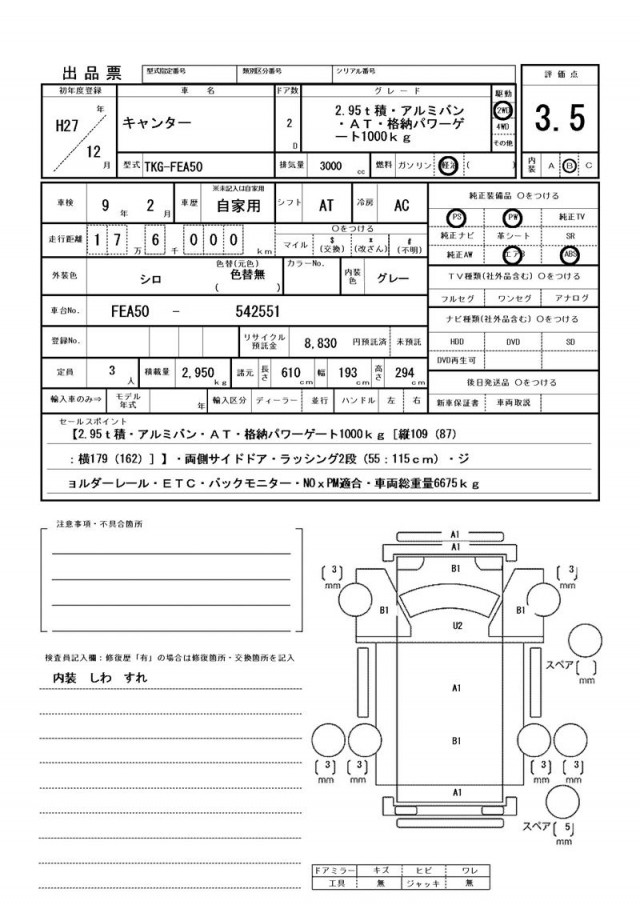 出品票 型式指定番号 類別区分番号 シリアル番号
評価点
初年度登録 車名 ドア数 グレード 駆動
H27 年 キャンター 2 D 2.95t積・アルミバン 2WD 3.5
・AT・格納パワーゲ 4WD
12 月 ート1000kg その他
型式 TKG-FEA50 排気量 3000 cc 燃料 ガソリン 軽油 ( ) 内装 A B C
車検 9 年 2 月 車歴 ※未記入は自家用 自家用 シフト AT 冷房 AC 純正装備品 〇をつける
PS PW 純正TV
走行距離 1 7 万 6 千 0 0 0 km 〇をつける マイル $ (交換) * (改ざん) # (不明) 純正ナビ 革シート SR
純正AW エアB ABS
外装色 シロ 色替(元色) 色替無 ( ) カラーNo. 内装色 グレー TV種類(社外品含む) 〇をつける
フルセグ ワンセグ アナログ
車台No. FEA50 - 542551 ナビ種類(社外品含む) 〇をつける
登録No. リサイクル預託金 8,830 円預託済 未預託 HDD DVD SD
DVD再生可
定員 3 人 積載量 2,950 kg 諸元 長さ 610 cm 幅 193 cm 高さ 294 cm 後日発送品 〇をつける
輸入車のみ⇒ モデル年式 年 輸入区分 ディーラー 並行 ハンドル 左 右 新車保証書 車両取説
セールスポイント
【2.95t積・アルミバン・AT・格納パワーゲート1000kg［縦109（87）
：横179（162）］】・両側サイドドア・ラッシング2段（55：115cm）・ジ
ョルダーレール・ETC・バックモニター・NOxPM適合・車両総重量6675kg
注意事項・不具合箇所
検査員記入欄：修復歴「有」の場合は修復箇所・交換箇所を記入
内装 しわ すれ
A1
A1
[ 3 ] mm B1 [ 3 ] mm
B1 B1
U2
スペア [ ] mm
A1
B1
[ 3 ] mm [ 3 ] mm [ 3 ] mm [ 3 ] mm
A1
スペア [ 5 ] mm
ドアミラー キズ ヒビ ワレ
工具 無 ジャッキ 無